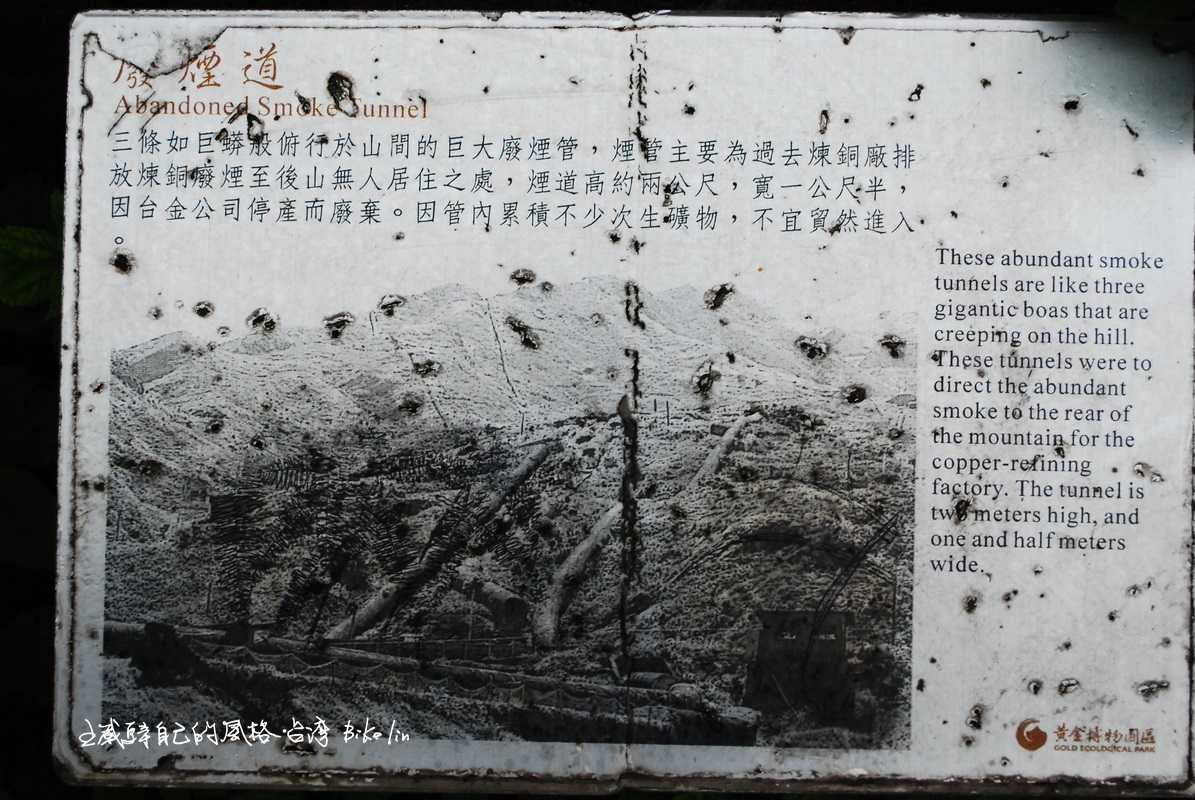 廢煙道
Abandoned Smoke Tunnel
三條如巨蟒般俯行於山間的巨大廢煙管，煙管主要為過去煉銅廠排
放煉銅廢煙至後山無人居住之處，煙道高約兩公尺，寬一公尺半，
因台金公司停產而廢棄。因管內累積不少次生礦物，不宜貿然進入
。
These abundant smoke
tunnels are like three
gigantic boas that are
creeping on the hill.
These tunnels were to
direct the abundant
smoke to the rear of
the mountain for the
copper-refining
factory. The tunnel is
two meters high, and
one and half meters
wide.
自己的風格.台灣 Biko lin
黃金博物園區
GOLD ECOLOGICAL PARK